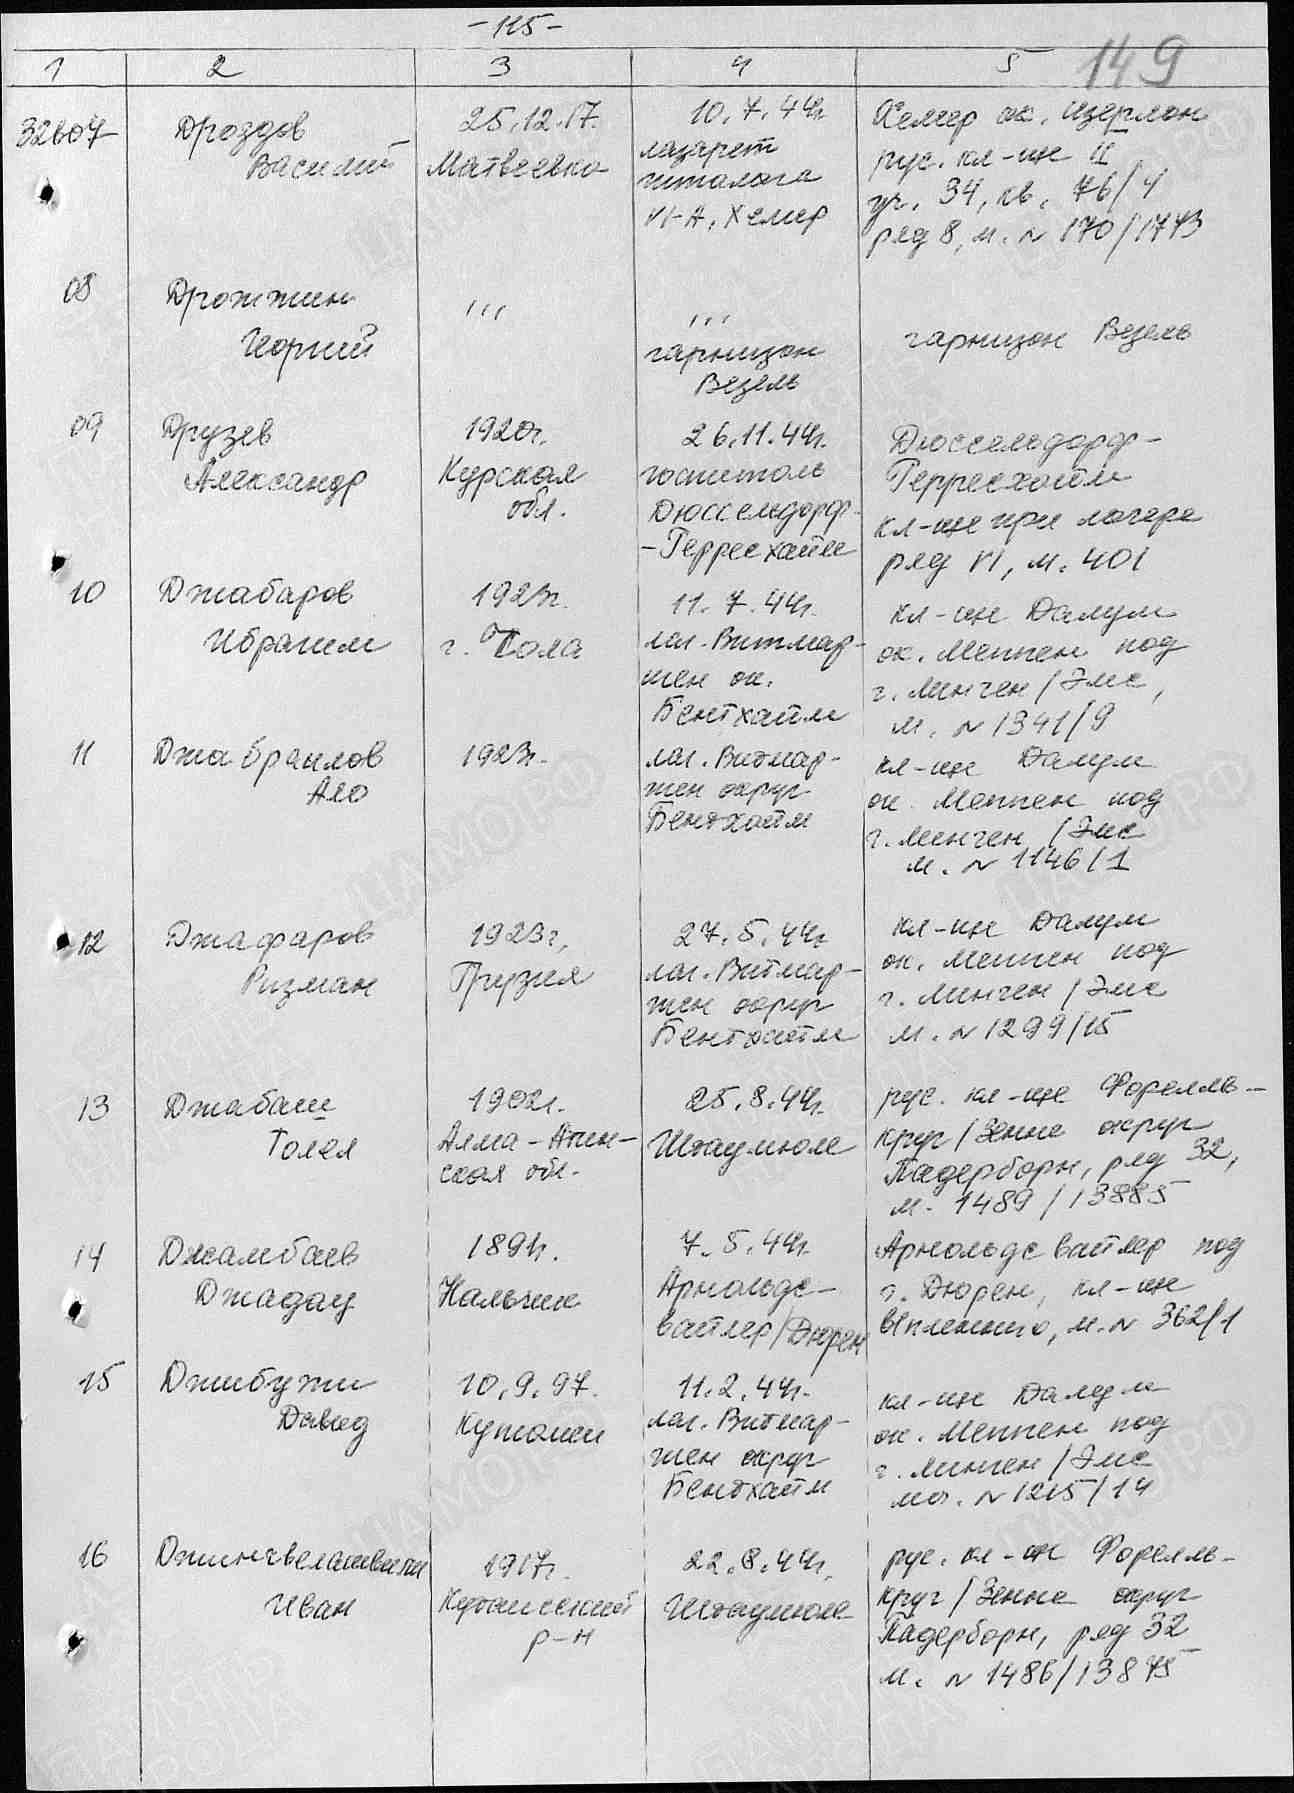 -115-
149
1 2 3 4 5
32607 Дроздов Василий
25.12.17. Матвеевка
10.7.44г.
лазарет
шталага
VI-А, Хемер
Хемер ок. Изерлон
рус. кл-ще II
уч. 34, кв. 76/4
ряд 8, м. № 170/1773
08 Дрожжин
,,,
,,,
гарнизон
Везель
гарнизон Везель
09 Друзев
Александр
1920г.
Курская
обл.
26.11.44г.
госпиталь
Дюссельдорф-
-Герресхайм
Дюссельдорф-
Герресхайм
кл-ще при лагере
ряд VI, м. 401
10 Джабаров
Ибрагим
1923г.
11.7.44г.
лаг. Витмар-
шен ок.
Бентхайм
кл-ще Далум
ок. Меппен под
г. Линген/Эмс,
м. № 1341/9
11 Джабраилов
Або
1923г.
лаг. Витмар-
шен округ
Бентхайм
кл-ще Далум
ок. Меппен под
г. Линген/Эмс
м. № 1146/1
12 Джафаров
Ризман
1923г,
Грузия
27.5.44г
лаг. Витмар-
шен округ
Бентхайм
кл-ще Далум
ок. Меппен под
г. Линген/Эмс
м. № 1299/15
13 Джабаш
Толел
1902г.
Алма-Атин-
ская обл.
25.8.44г.
Штаумюле
рус. кл-ще Форелль-
круг/Зенне округ
Падерборн, ряд 32,
м. 1489/13885
14 Джамбаев
Джадау
1891г.
Нальчик
7.5.44г.
Арнольдс-
вайлер/Дюрен
Арнольдсвайлер под
г. Дюрен, кл-ще
м. № 362/1
15 Джибути
Давид
10.9.97.
Кутаиси
11.2.44г.
лаг. Витмар-
шен округ
Бентхайм
кл-ще Далум
ок. Меппен под
г. Линген/Эмс
мог. № 1215/14
16 Джингвелашвили
Иван
1917г.
Кутаисский
р-н
22.8.44г.
Штаумюле
рус. кл-ще Форелль-
круг/Зенне округ
Падерборн, ряд 32
м. № 1486/13875